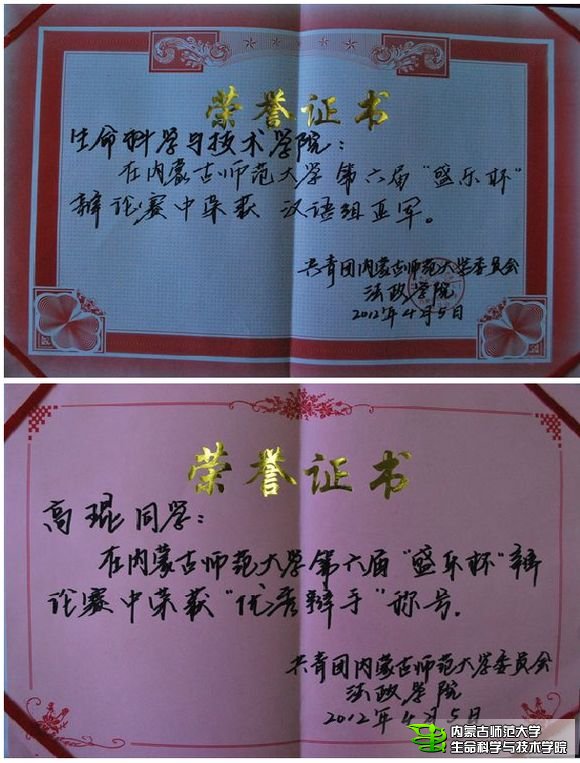 荣誉证书
生命科学与技术学院：
在内蒙古师范大学第六届“盛乐杯”
辩论赛中荣获 汉语组亚军。
共青团内蒙古师范大学委员会
法政学院
2012年4月5日
荣誉证书
高琨同学：
在内蒙古师范大学第六届“盛乐杯”辩
论赛中荣获“优秀辩手”称号。
共青团内蒙古师范大学委员会
法政学院
2012年4月5日
内蒙古师范大学
生命科学与技术学院